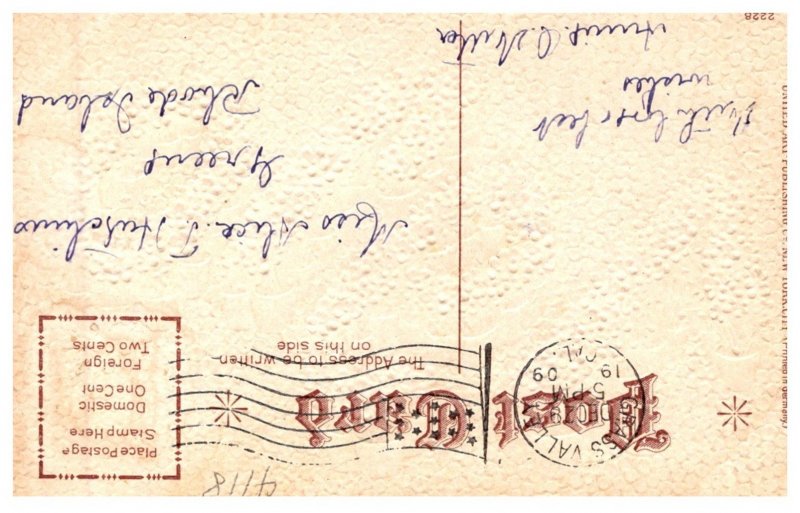 4118
Post Card
Place Postage
Stamp Here
Domestic
One Cent
Foreign
Two Cents
GRASS VALLEY
DEC 19
5 PM
19 09
CAL.
The Address to be written
on this side
UNITED ART PUBLISHING CO. NEW YORK CITY (Printed in Germany)
2228
With love & best
wishes
Annie O.
Miss Alice T. Hutchins
Greene
Rhode Island